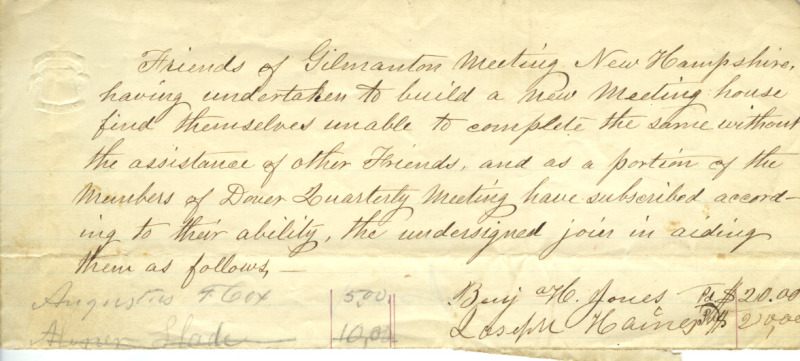 Friends of Gilmanton Meeting New Hampshire,
having undertaken to build a new Meeting house
find themselves unable to complete the same without
the assistance of other Friends, and as a portion of the
Members of Dover Quarterly Meeting have subscribed accord-
ing to their ability, the undersigned join in aiding
them as follows, –
Augustus F Cox 5,00 Benj H. Jones Pd $20.00
Slade 10,00 Joseph Haines $20,00